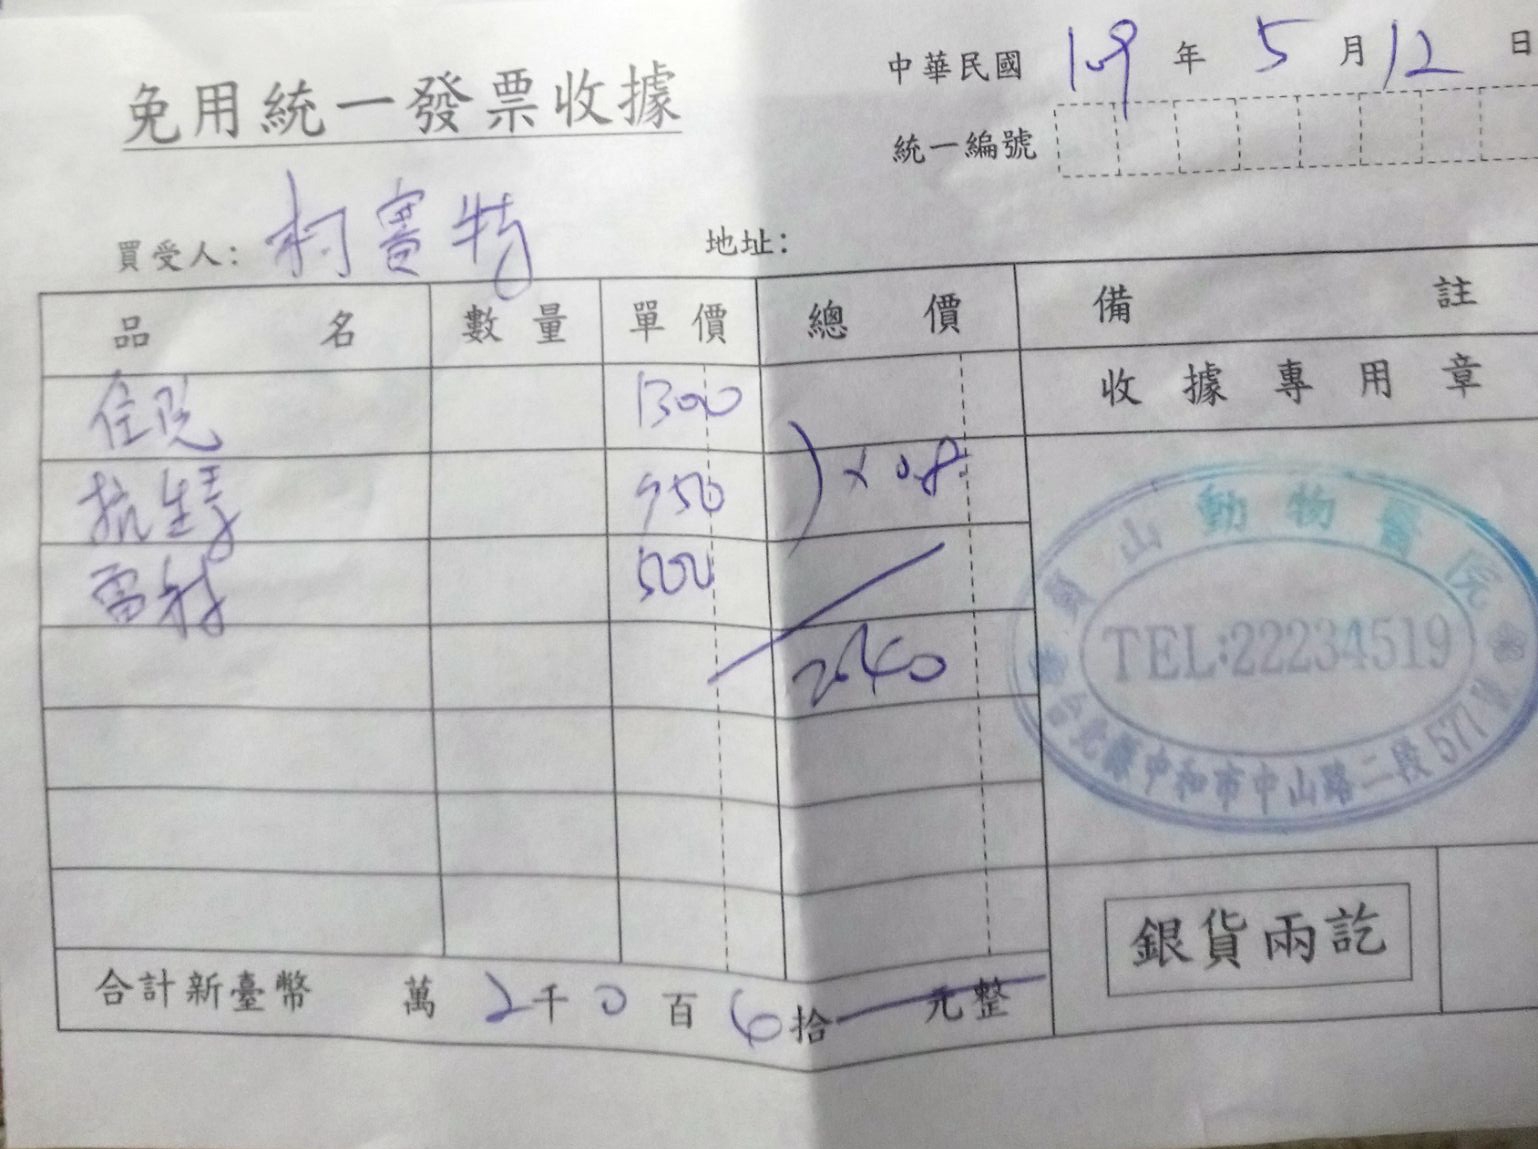 免用統一發票收據
中華民國 109 年 5 月 12 日
統一編號
買受人: 柯賽特 地址:
品名 數量 單價 總價 備註
收據專用章
住院 1300
抗生素 750 ) × 0.8
雷射 500
2040
山動物醫院
TEL:22234519
台北縣中和市中山路二段577號
合計新臺幣 萬 2千 0百 6拾 元整
銀貨兩訖